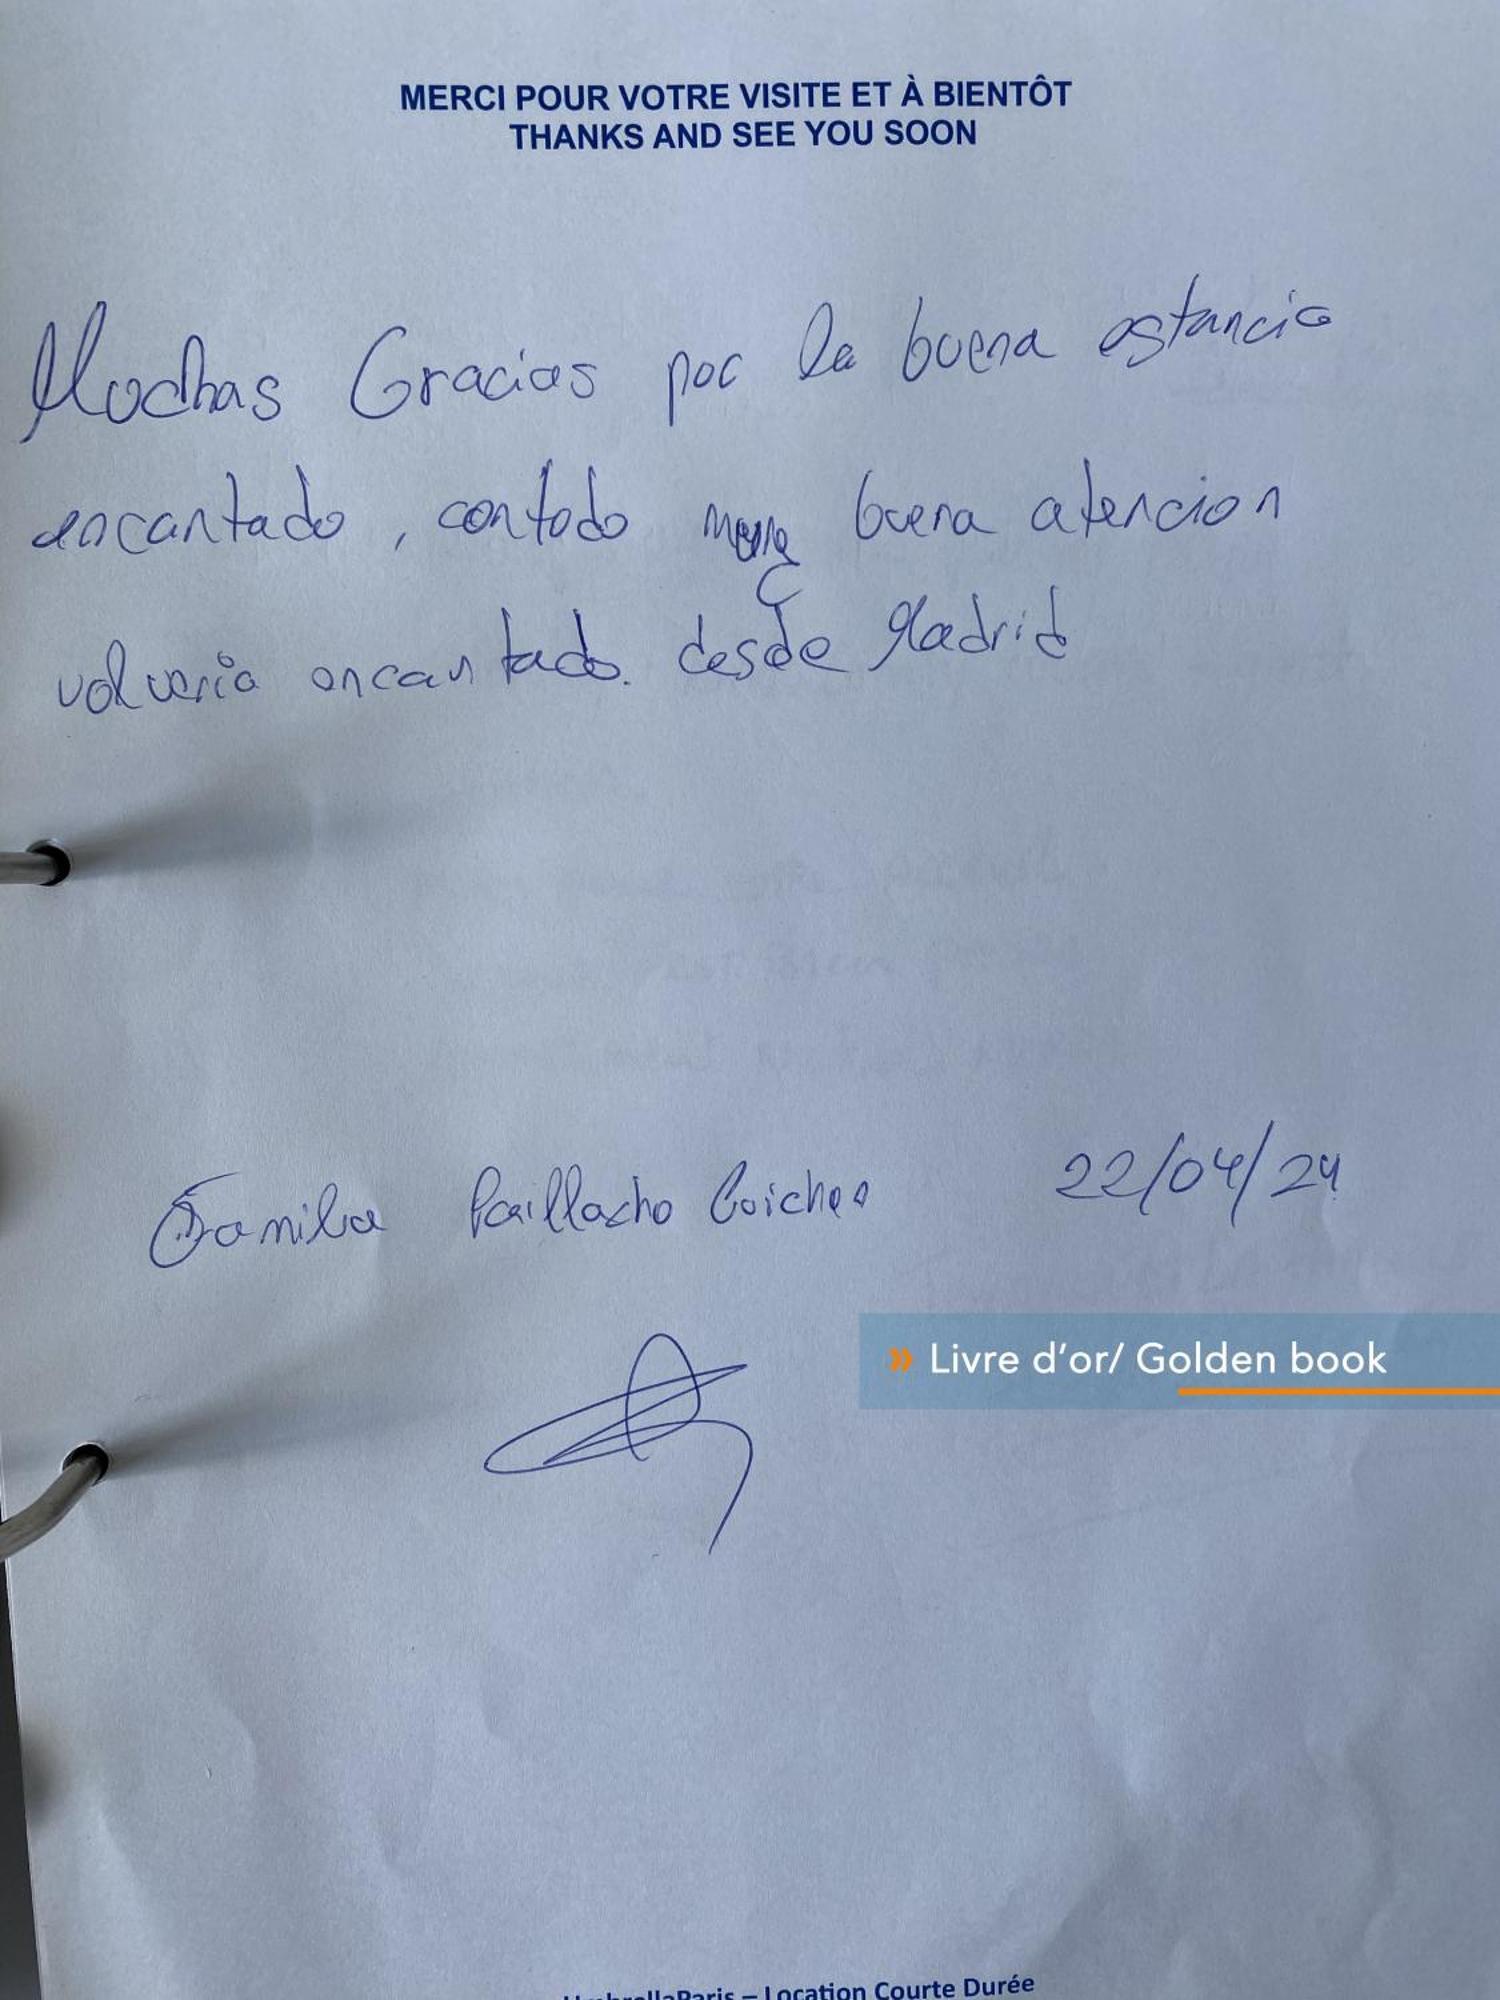 MERCI POUR VOTRE VISITE ET À BIENTÔT
THANKS AND SEE YOU SOON
Muchas Gracias por la buena estancia
encantado, contodo muy buena atencion
volveria encantado. desde Madrid
Familia Paillacho 22/04/24
» Livre d'or/ Golden book
UmbrellaParis – Location Courte Durée